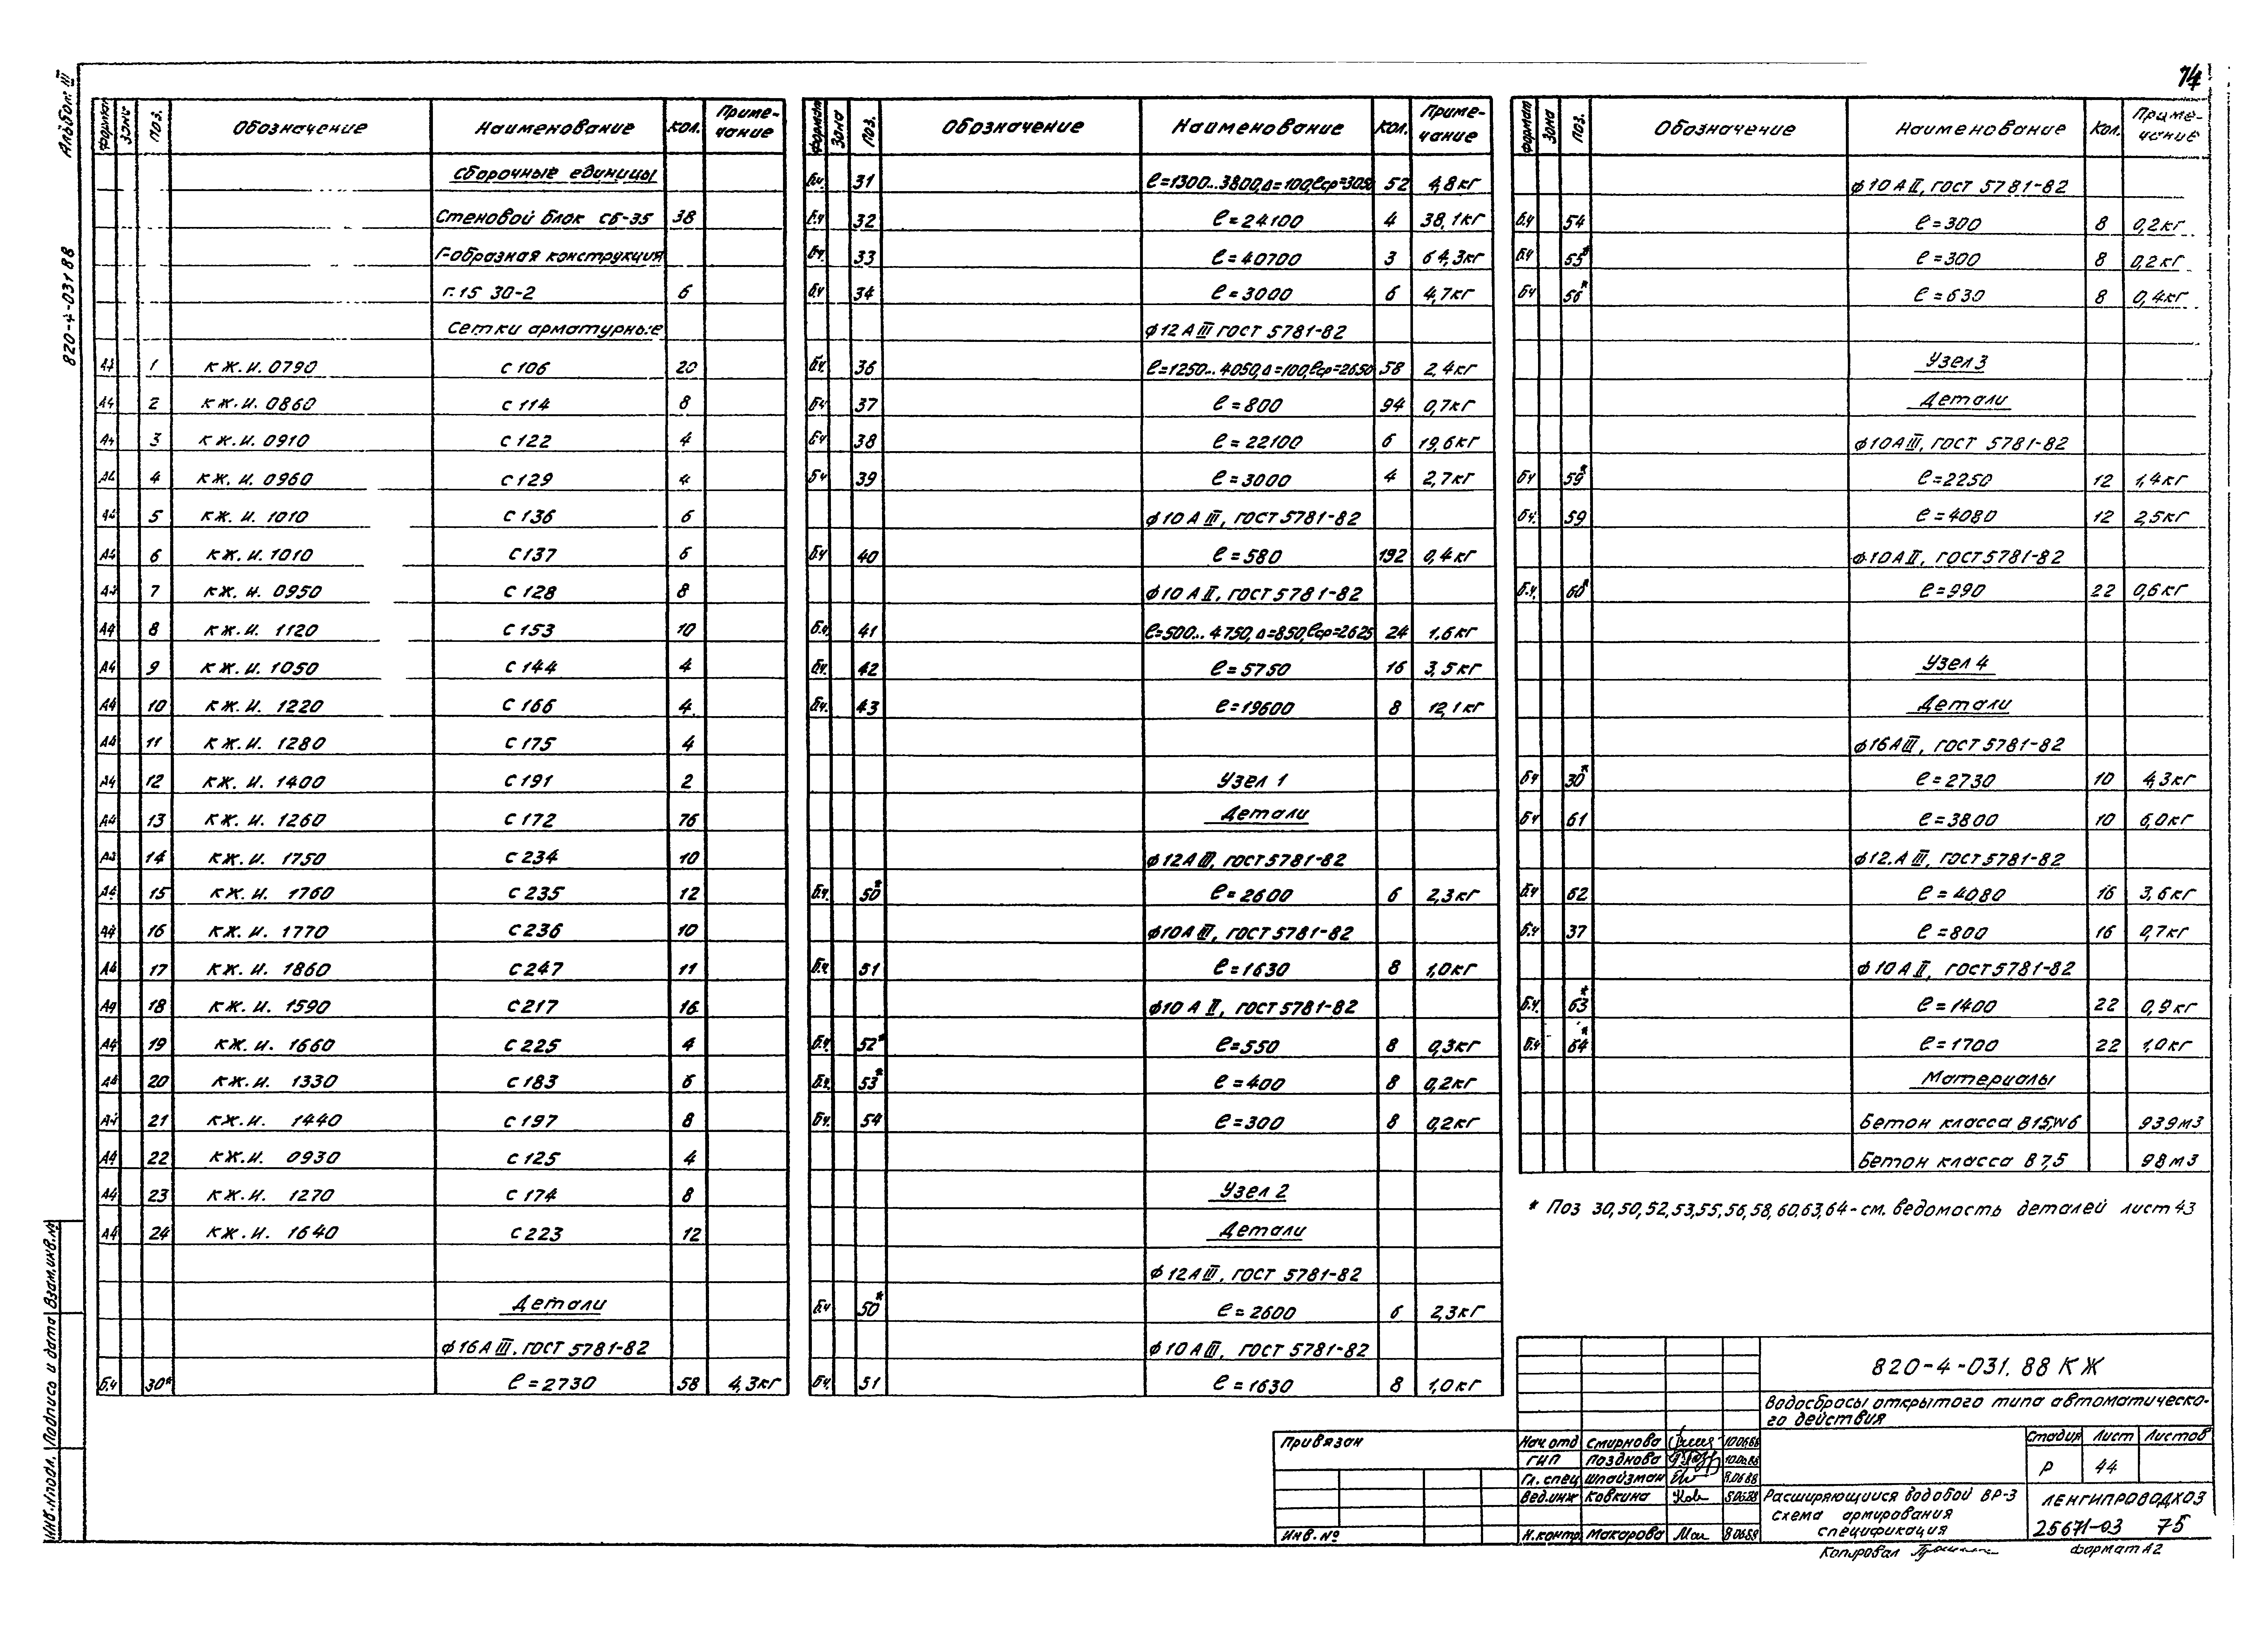 74
Альбом III
820-4-031 88
Формат Зона Поз. Обозначение Наименование Кол. Примечание
Сборочные единицы
Стеновой блок СБ-35 38
Г-образная конструкция
Г.15 30-2 6
Сетки арматурные
А4 1 КЖ.И. 0790 С 106 20
А4 2 КЖ.И. 0860 С 114 8
А4 3 КЖ.И. 0910 С 122 4
А4 4 КЖ.И. 0960 С 129 4
А4 5 КЖ.И. 1010 С 136 6
А4 6 КЖ.И. 1010 С 137 6
А4 7 КЖ.И. 0950 С 128 8
А4 8 КЖ.И. 1120 С 153 10
А4 9 КЖ.И. 1050 С 144 4
А4 10 КЖ.И. 1220 С 166 4
А4 11 КЖ.И. 1280 С 175 4
А4 12 КЖ.И. 1400 С 191 2
А4 13 КЖ.И. 1260 С 172 76
14 КЖ.И. 1750 С 234 10
А4 15 КЖ.И. 1760 С 235 12
А4 16 КЖ.И. 1770 С 236 10
А4 17 КЖ.И. 1860 С 247 11
А4 18 КЖ.И. 1590 С 217 16
А4 19 КЖ.И. 1660 С 225 4
А4 20 КЖ.И. 1330 С 183 6
А4 21 КЖ.И. 1440 С 197 8
А4 22 КЖ.И. 0930 С 125 4
А4 23 КЖ.И. 1270 С 174 8
А4 24 КЖ.И. 1640 С 223 12
Детали
ф16АIII. ГОСТ 5781-82
Б.ч 30* ℓ=2730 58 4,3кг
Формат Зона Поз. Обозначение Наименование Кол. Примечание
Б.ч. 31 ℓ=1300...3800,Δ=100,ℓср=3050 52 4,8кг
Б.ч 32 ℓ=24100 4 38,1кг
Б.ч. 33 ℓ=40700 3 64,3кг
Б.ч 34 ℓ=3000 6 4,7кг
ф12АIII ГОСТ 5781-82
Б.ч. 36 ℓ=1250...4050,Δ=100,ℓср=2650 58 2,4кг
Б.ч 37 ℓ=800 94 0,7кг
Б.ч 38 ℓ=22100 6 19,6кг
Б.ч 39 ℓ=3000 4 2,7кг
ф10АIII, ГОСТ 5781-82
Б.ч 40 ℓ=580 192 0,4кг
ф10АII, ГОСТ 5781-82
Б.ч. 41 ℓ=500...4750,Δ=850,ℓср=2625 24 1,6кг
Б.ч. 42 ℓ=5750 16 3,5кг
Б.ч. 43 ℓ=19600 8 12,1кг
Узел 1
Детали
ф12АIII, ГОСТ 5781-82
Б.ч. 50* ℓ=2600 6 2,3кг
ф10АIII, ГОСТ 5781-82
Б.ч. 51 ℓ=1630 8 1,0кг
ф10АII, ГОСТ 5781-82
Б.ч. 52* ℓ=550 8 0,3кг
Б.ч. 53* ℓ=400 8 0,2кг
Б.ч. 54 ℓ=300 8 0,2кг
Узел 2
Детали
ф12АIII, ГОСТ 5781-82
Б.ч 50* ℓ=2600 6 2,3кг
ф10АIII, ГОСТ 5781-82
Б.ч. 51 ℓ=1630 8 1,0кг
Формат Зона Поз. Обозначение Наименование Кол. Примечание
ф10АII, ГОСТ 5781-82
Б.ч 54 ℓ=300 8 0,2кг
Б.ч 55* ℓ=300 8 0,2кг
Б.ч 56* ℓ=630 8 0,4кг
Узел 3
Детали
ф10АIII, ГОСТ 5781-82
Б.ч 59* ℓ=2250 12 1,4кг
Б.ч. 59 ℓ=4080 12 2,5кг
ф10АII, ГОСТ 5781-82
Б.ч. 60* ℓ=990 22 0,6кг
Узел 4
Детали
ф16АIII, ГОСТ 5781-82
Б.ч 30* ℓ=2730 10 4,3кг
Б.ч 61 ℓ=3800 10 6,0кг
ф12.АIII, ГОСТ 5781-82
Б.ч 62 ℓ=4080 16 3,6кг
Б.ч 37 ℓ=800 16 0,7кг
ф10АII, ГОСТ 5781-82
Б.ч. 63* ℓ=1400 22 0,9кг
Б.ч 64* ℓ=1700 22 1,0кг
Материалы
Бетон класса В15,W6 939м3
Бетон класса В 7,5 98м3
* Поз 30,50,52,53,55,56,58,60,63,64-см. ведомость деталей лист 43
820-4-031.88 КЖ
Водосбросы открытого типа автоматическо-
го действия
Привязан
Инв.№
Нач.отд Смирнова 10.06.88
ГИП Позднова 10.06.88
Гл.спец Шпайзман 8.06.88
Вед.инж Ковкина 5.06.88
Н.контр. Макарова 8.06.88
Стадия Лист Листов
Р 44
Расширяющийся водобой ВР-3
Схема армирования
Спецификация
ЛЕНГИПРОВОДХОЗ
25671-03 75
Копировал
Формат А2
Инв.№подл. Подпись и дата Взам.инв.№